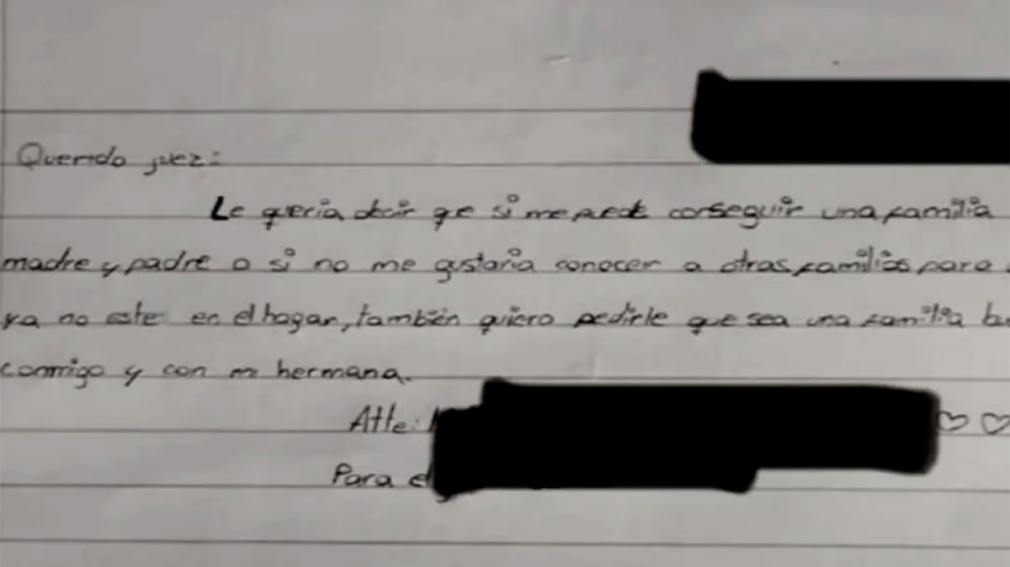 Querido juez:
Le queria decir qe si me puede conseguir una familia
madre y padre o si no me gustaria conocer a otras familias para
ya no este en el hogar, también quiero pedirle que sea una familia
conmigo y con mi hermana.
Atte:
Para